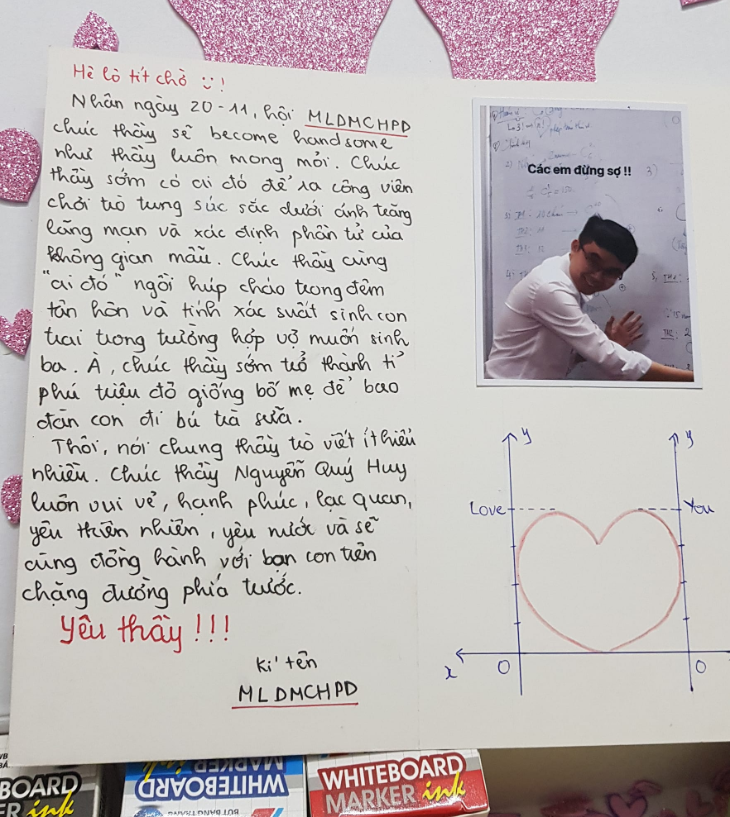 Hè lò tít chờ :)!
Nhân ngày 20-11, hội MLDMCHPD
chúc thầy sẽ become handsome
như thầy luôn mong mỏi. Chúc
thầy sớm có ai đó để ra công viên
chơi trò tung súc sắc dưới ánh trăng
lãng mạn và xác định phần tử của
không gian mẫu. Chúc thầy cùng
"ai đó" ngồi húp cháo trong đêm
tân hôn và tính xác suất sinh con
trai trong trường hợp vợ muốn sinh
ba. À, chúc thầy sớm trở thành tỉ
phú triệu đô giống bố mẹ để bao
đàn con đi bú trà sữa.
Thôi, nói chung thầy trò viết ít hiểu
nhiều. Chúc thầy Nguyễn Quý Huy
luôn vui vẻ, hạnh phúc, lạc quan,
yêu thiên nhiên, yêu nước và sẽ
cùng đồng hành với bọn con trên
chặng đường phía trước.
Yêu thầy!!!
Kí tên
MLDMCHPD
Các em đừng sợ !!
y
y
Love
You
x
O
O
BOARD
ER ink
WHITEBOARD
MARKER
WHITEBOARD
MARKER ink